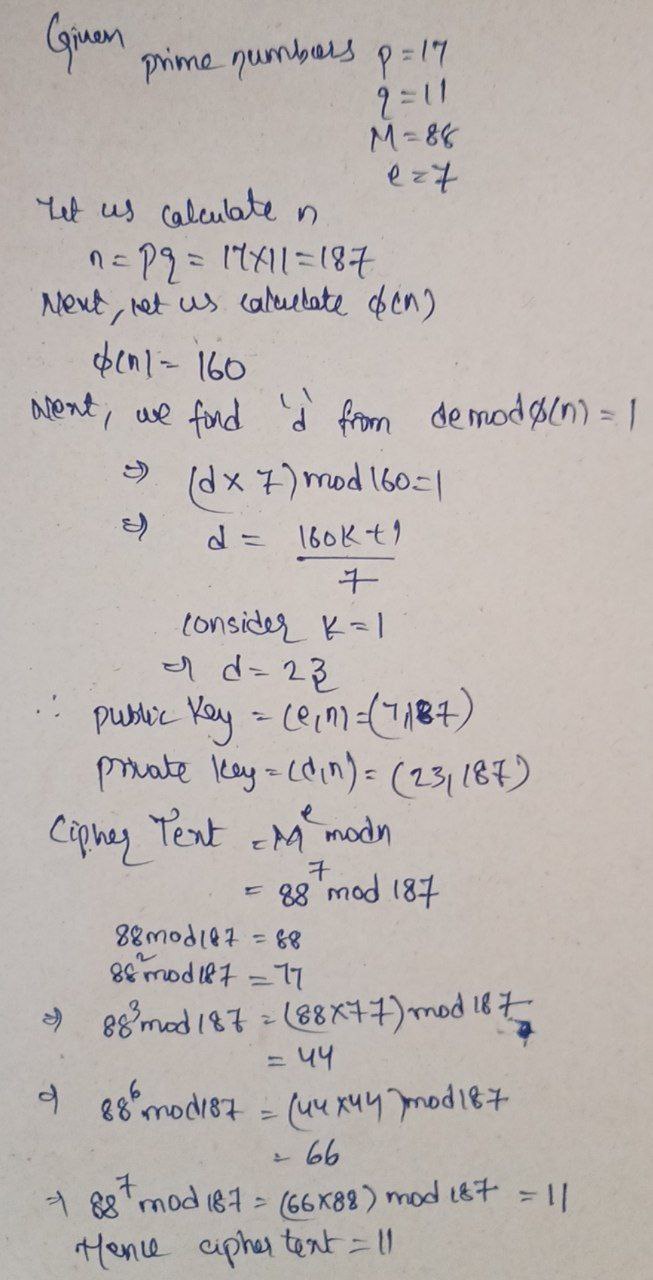 Given
prime numbers p=17
q=11
M=88
e=7
Let us calculate n
n=pq = 17×11=187
Next, let us calculate ϕ(n)
ϕ(n)= 160
Next, we find 'd' from de mod ϕ(n) = 1
⇒ (d × 7) mod 160=1
⇒ d = 160K+1
7
consider K=1
⇒ d=23
∴ public key = (e,n)=(7,187)
private key=(d,n)= (23,187)
Cipher Text = M^e mod n
= 88^7 mod 187
88mod187 = 88
88^2mod187 = 77
⇒ 88^3mod187 = (88×77)mod187
= 44
⇒ 88^6mod187 = (44×44)mod187
= 66
⇒ 88^7mod187 = (66×88) mod 187 = 11
Hence cipher text = 11